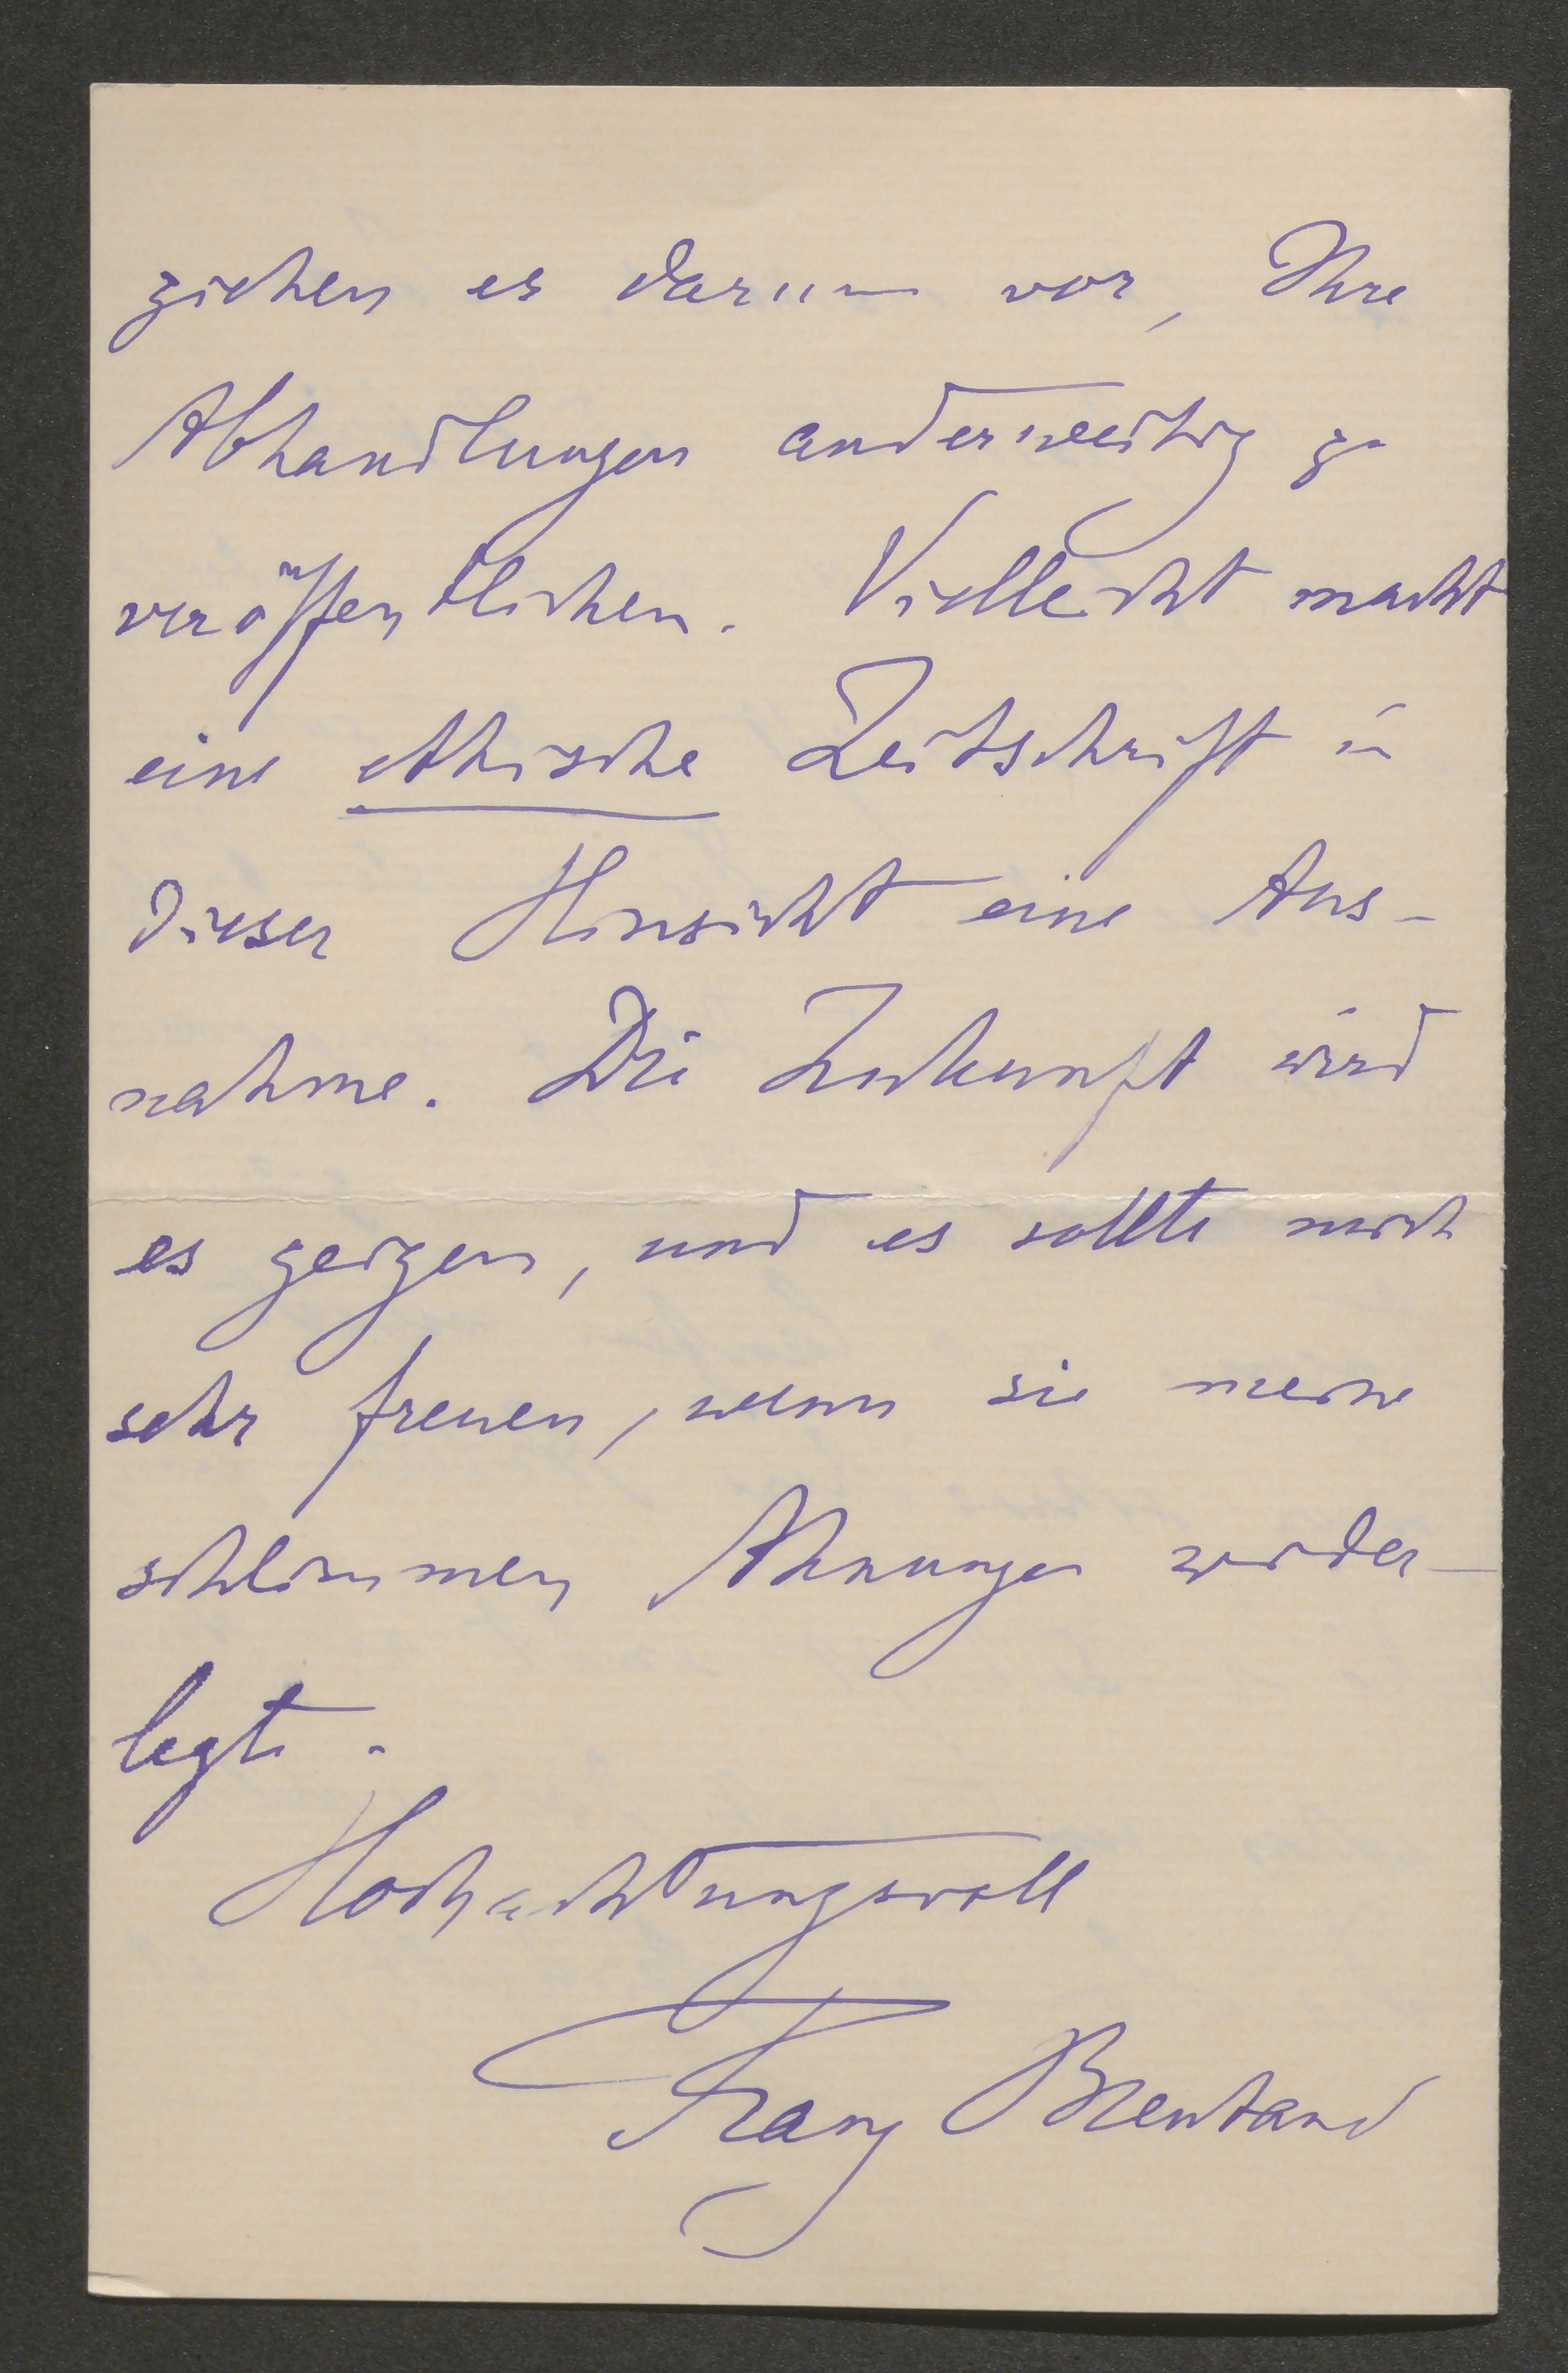 ziehen es darum vor, Ihre
Abhandlungen anderweitig zu
veröffentlichen. Vielleicht macht
eine ethische Zeitschrift in
dieser Hinsicht eine Aus-
nahme. Die Zukunft wird
es zeigen, und es sollte mich
sehr freuen, wenn sie meine
schlimmen Ahnungen wider-
legte.
Hochachtungsvoll
Franz Brentano